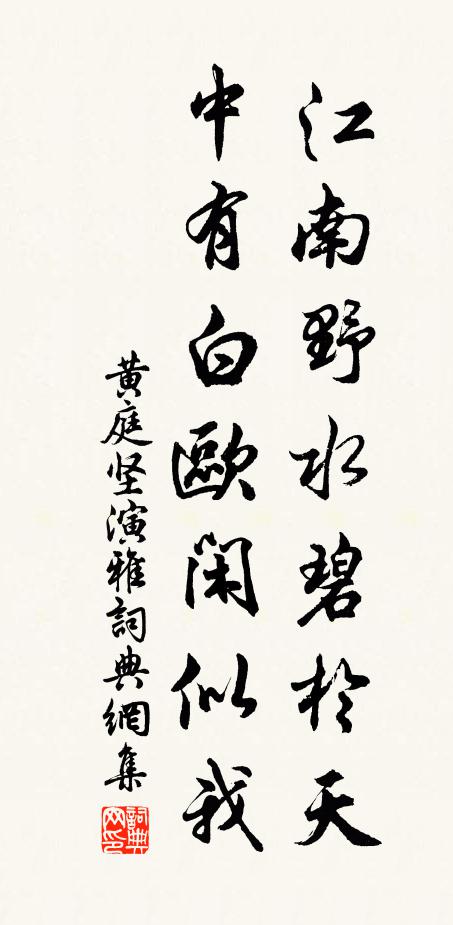 江南野水碧於天
中有白歐閑似我
黄庭坚演雅詞典網集
詞典网印